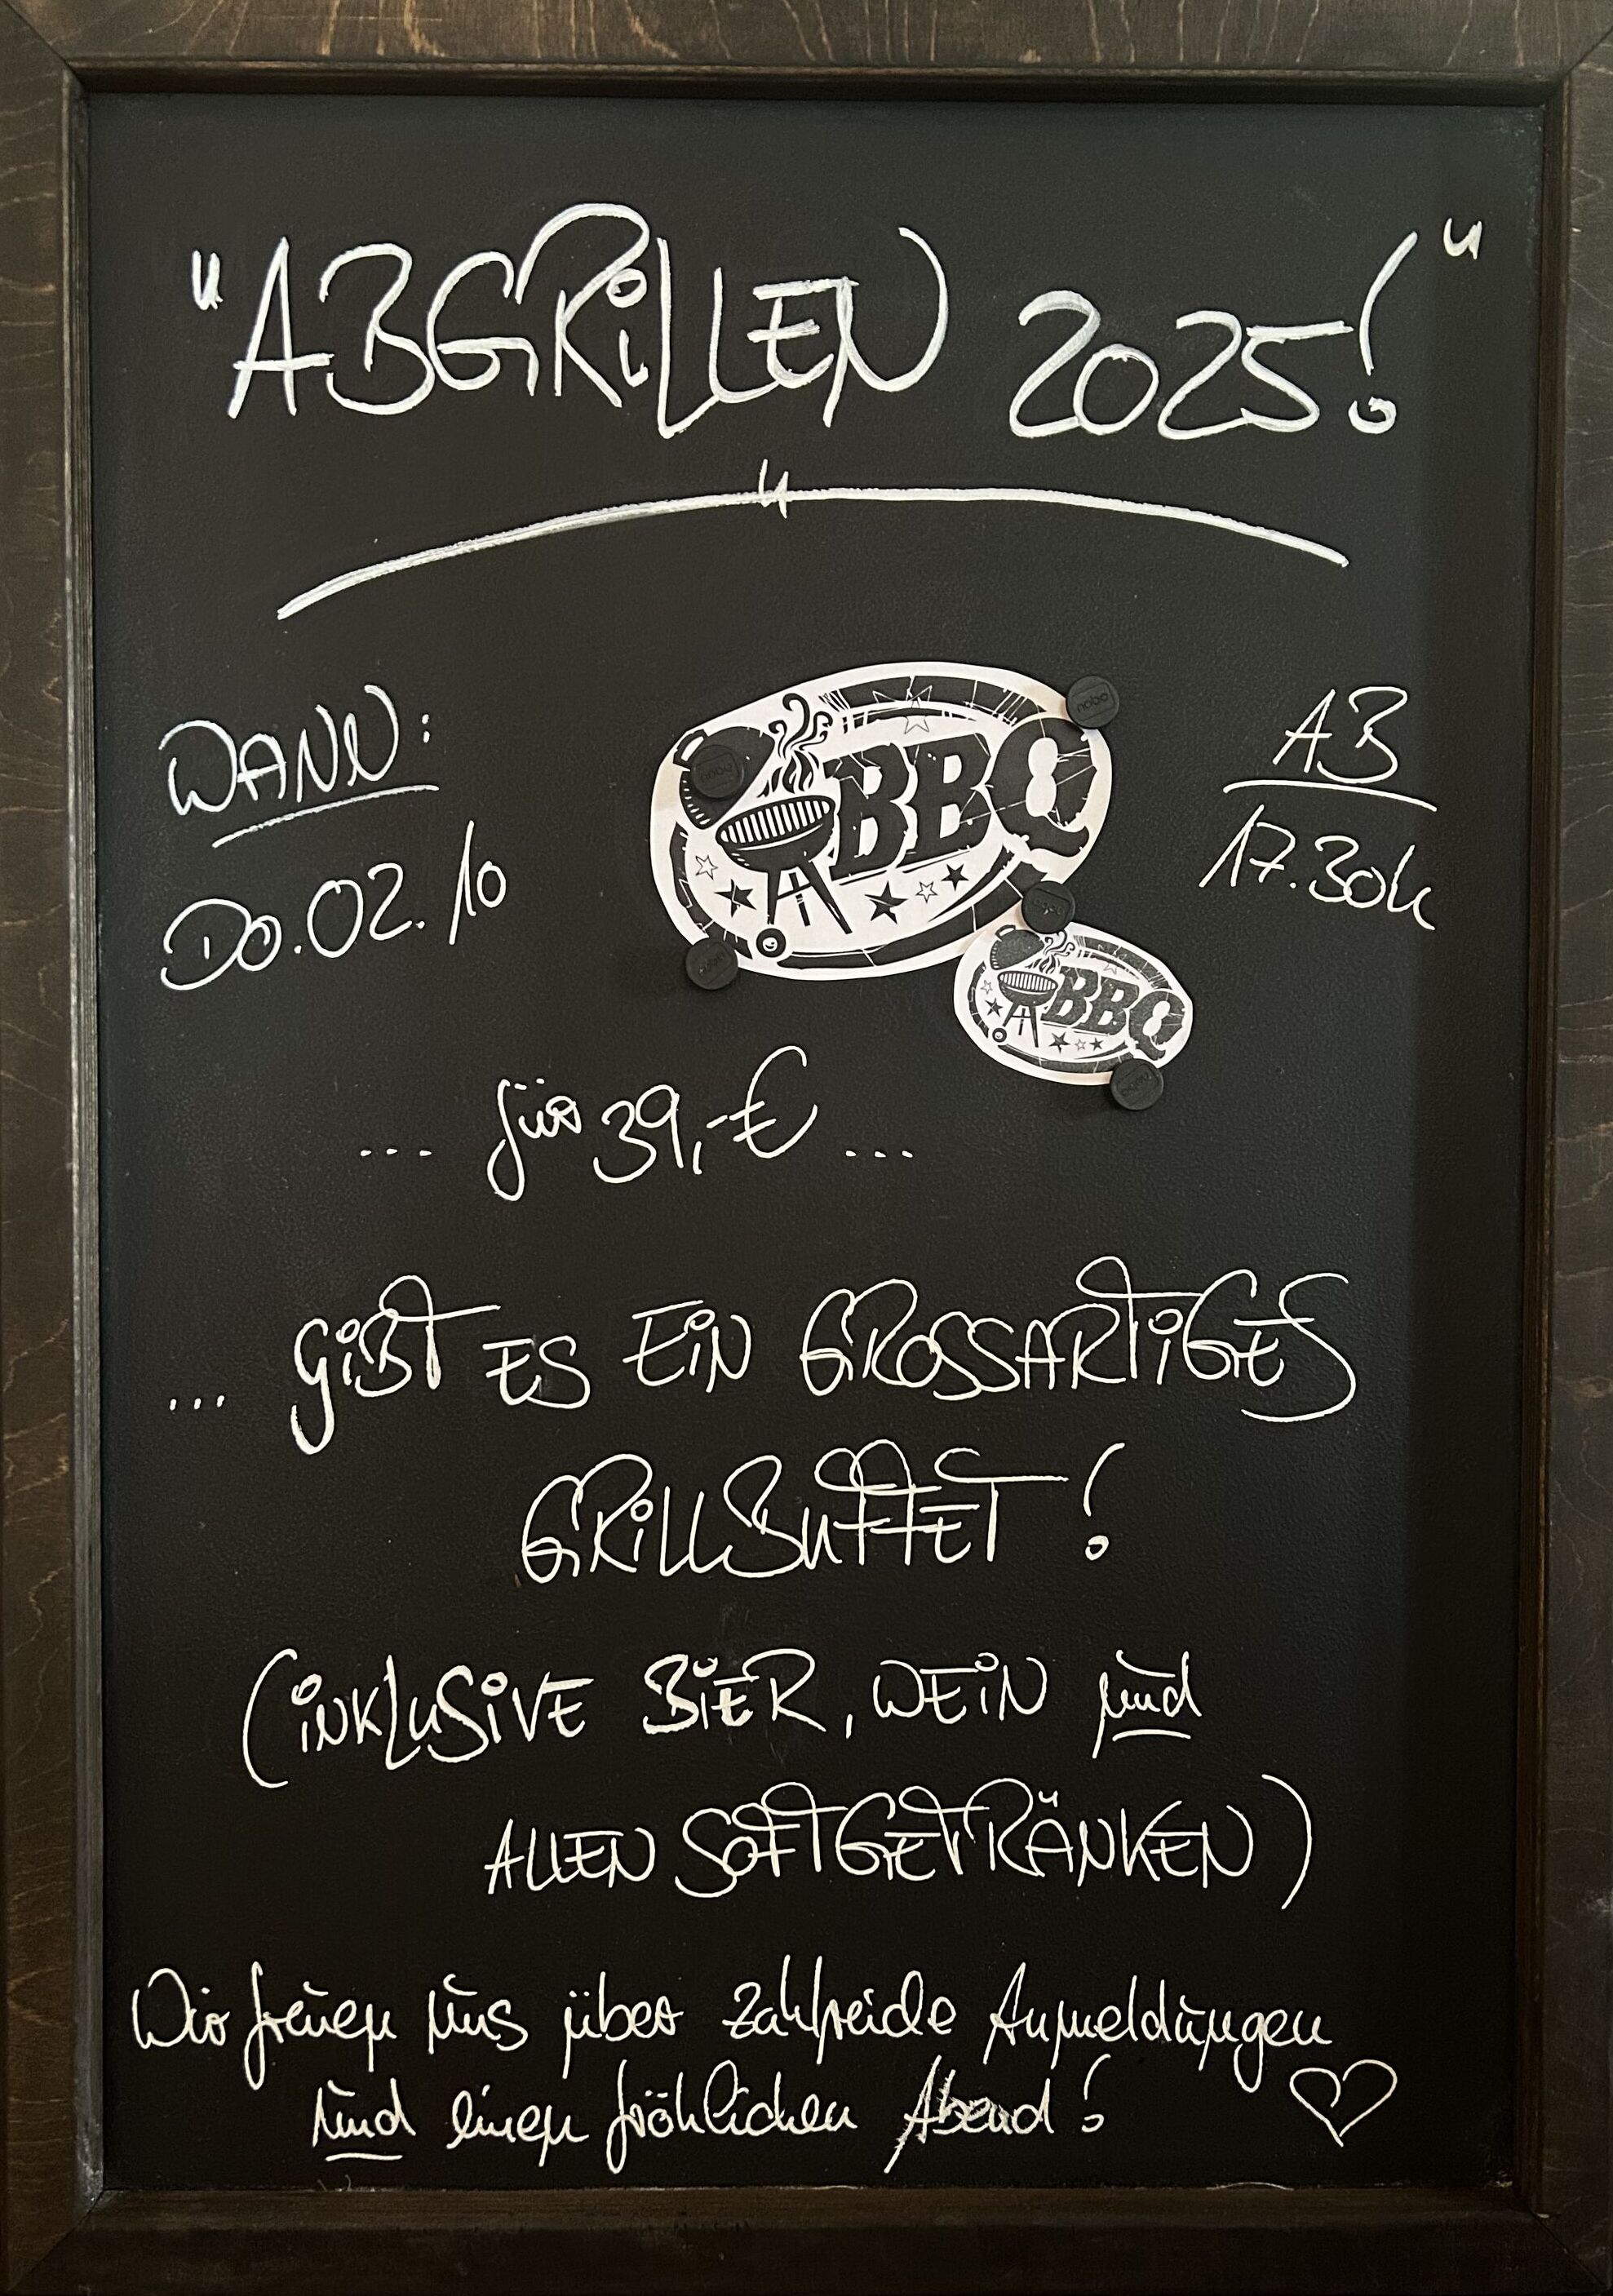 "ABGRiLLEN 2025!"
WANN:
DO. 02. 10
BBQ
AB
17.30h
BBQ
... für 39,-€ ...
... GiBT ES EiN GROSSARTiGES
GRiLLBUFFET!
(iNKLUSiVE BiER, WEiN und
ALLEN SOFTGETRÄNKEN)
Wir freuen uns über zahlreiche Anmeldungen
und einen fröhlichen Abend!